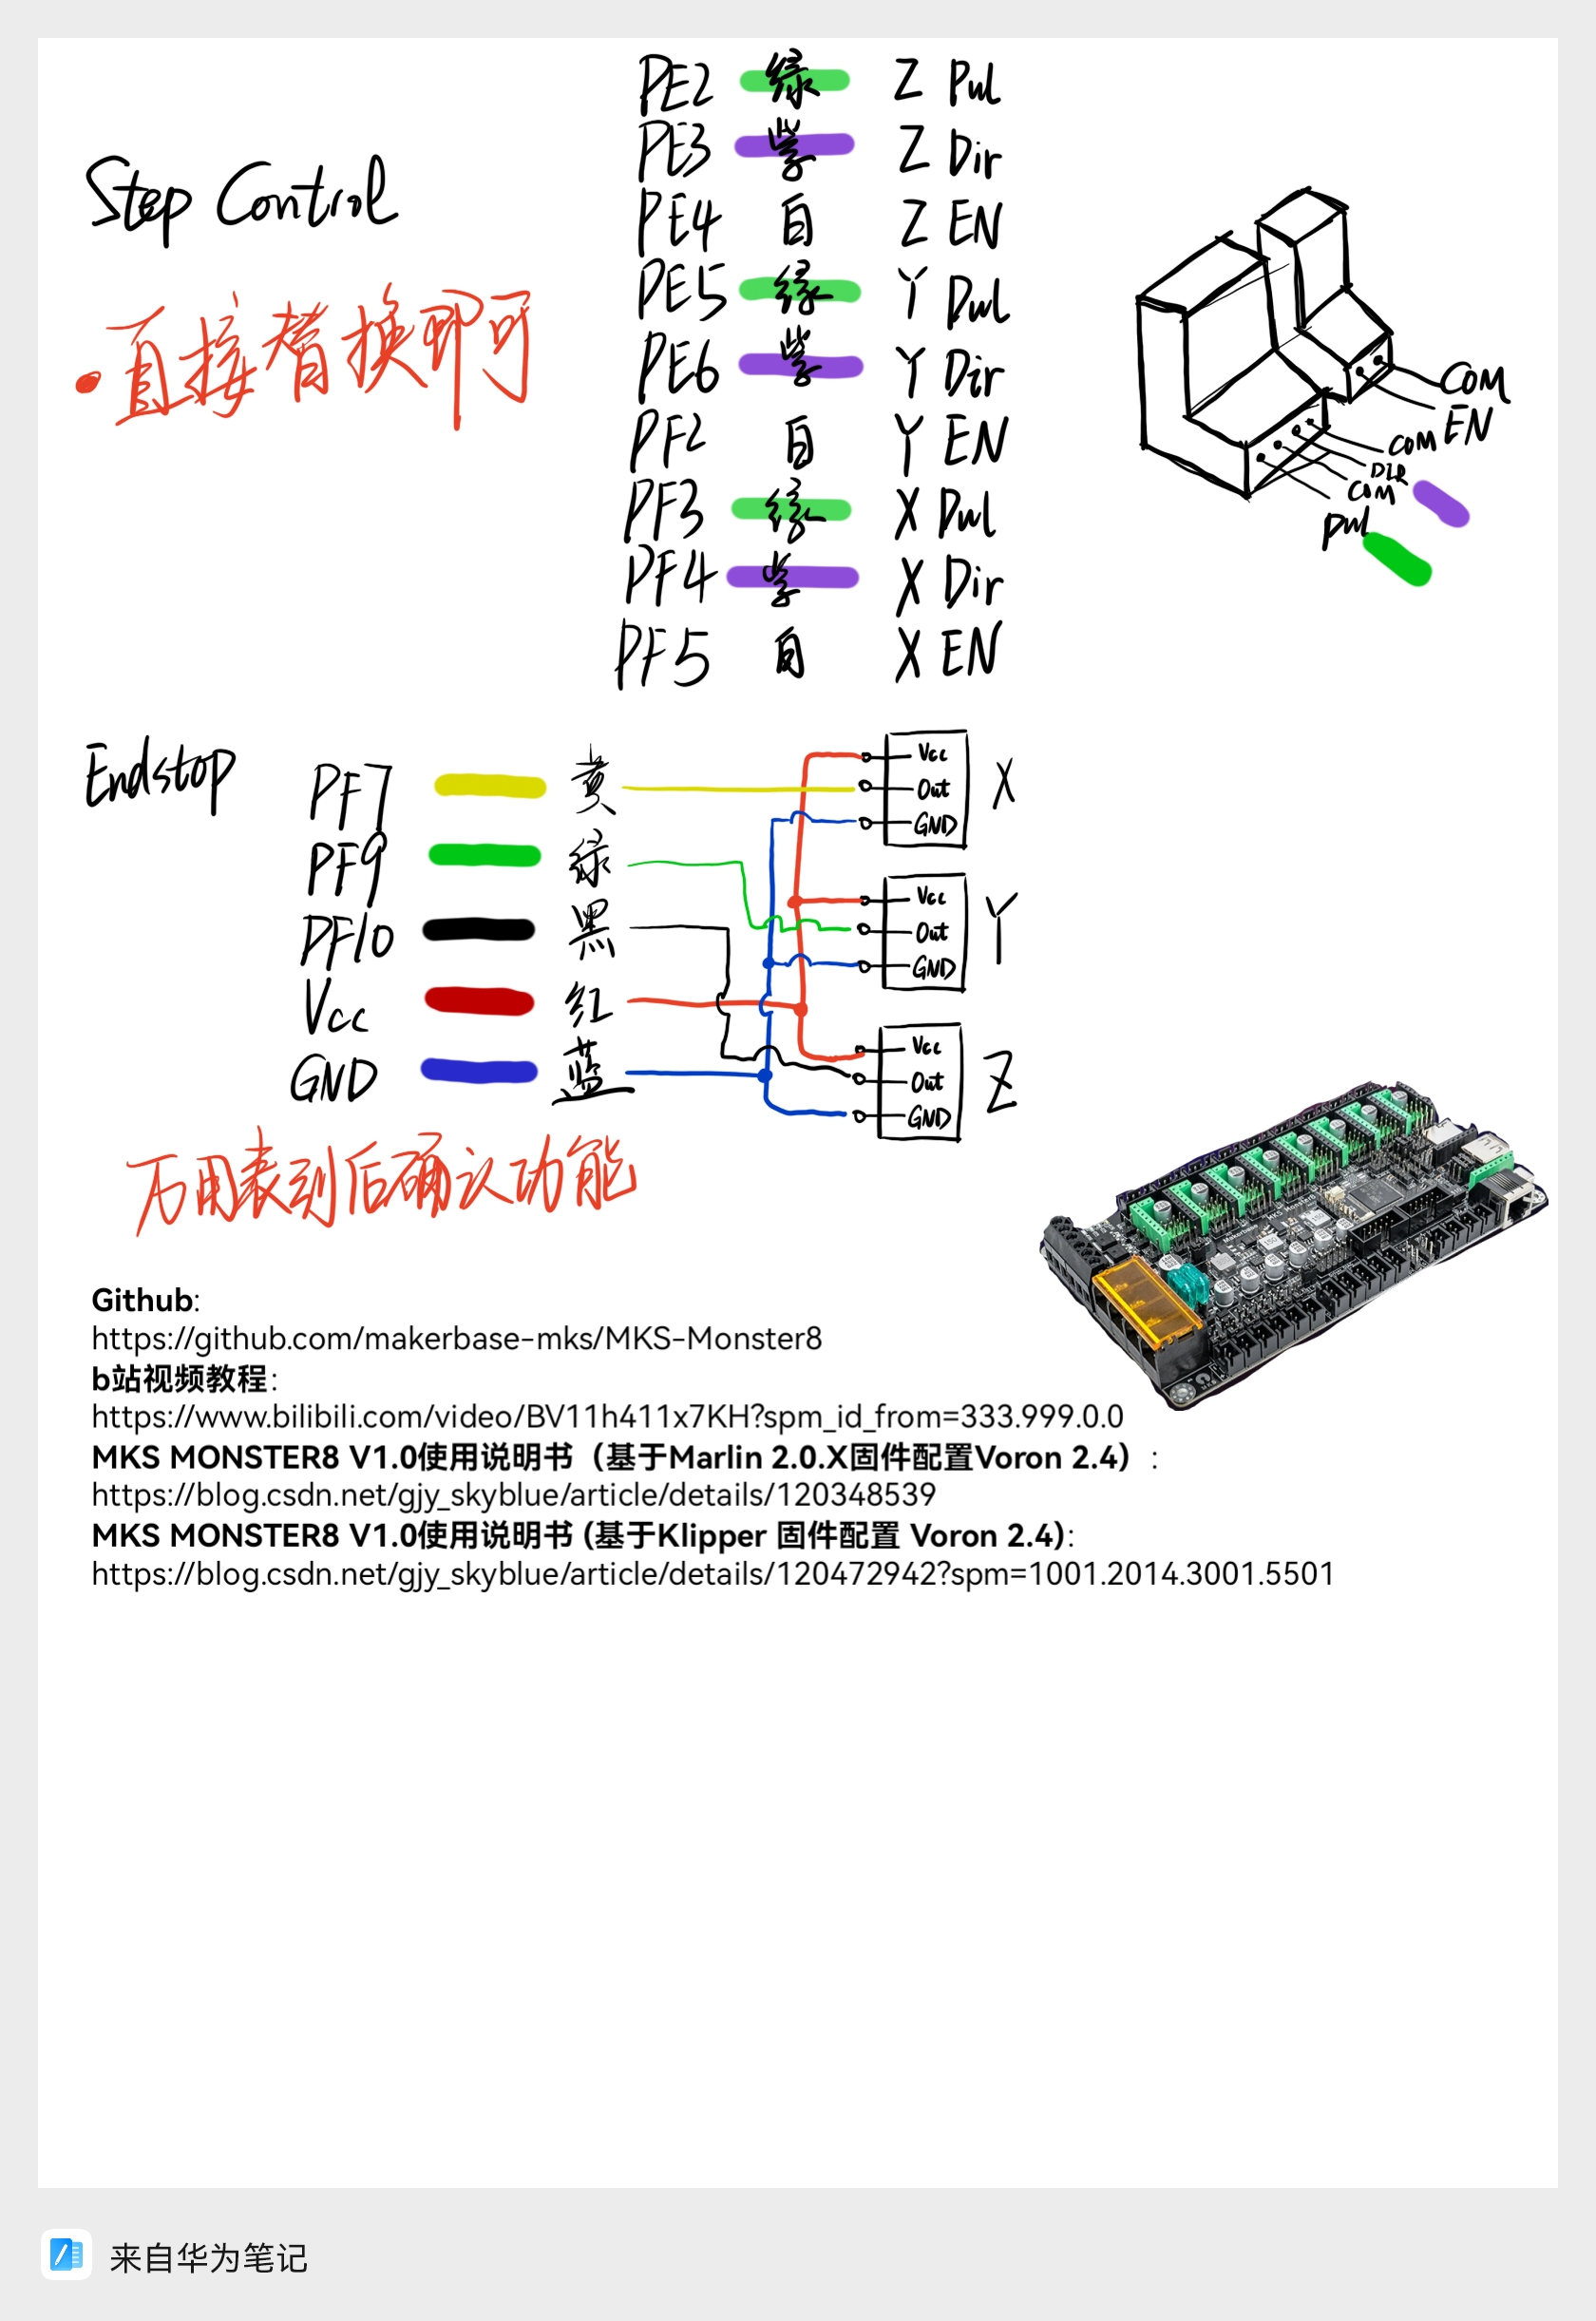 Step Control
• 直接替换即可
PE2 绿 Z Pul
PE3 紫 Z Dir
PE4 白 Z EN
PE5 绿 Y Pul
PE6 紫 Y Dir
PF2 白 Y EN
PF3 绿 X Pul
PF4 紫 X Dir
PF5 白 X EN
COM
EN
COM
DIR
COM
Pul
Endstop
PF7 黄
PF9 绿
PF10 黑
Vcc 红
GND 蓝
Vcc
Out
GND
X
Vcc
Out
GND
Y
Vcc
Out
GND
Z
万用表到后确认功能
Github:
https://github.com/makerbase-mks/MKS-Monster8
b站视频教程:
https://www.bilibili.com/video/BV11h411x7KH?spm_id_from=333.999.0.0
MKS MONSTER8 V1.0使用说明书（基于Marlin 2.0.X固件配置Voron 2.4）:
https://blog.csdn.net/gjy_skyblue/article/details/120348539
MKS MONSTER8 V1.0使用说明书 (基于Klipper 固件配置 Voron 2.4):
https://blog.csdn.net/gjy_skyblue/article/details/120472942?spm=1001.2014.3001.5501
来自华为笔记